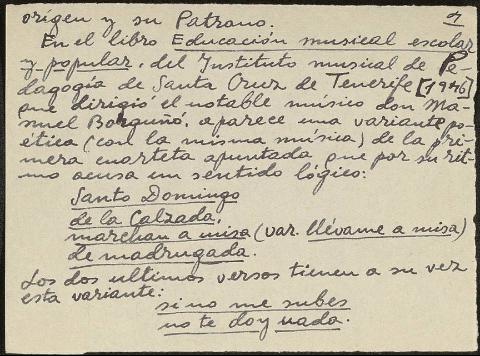 origen y su Patrono. 
En el libro Educación musical escolar
y popular, del Instituto musical de Pe-
dagogía de Santa Cruz de Tenerife [1946]
que dirigió el notable músico don Ma-
nuel Borguñó, aparece una variante po-
ética (con la misma música) de la pri-
mera cuarteta apuntada que por su rit-
mo acusa un sentido lógico:
Santo Domingo
de la Calzada,
marchan a misa (var. llévame a misa)
de madrugada.
Los dos ultimos versos tienen a su vez
esta variante:
si no me subes
no te doy nada.